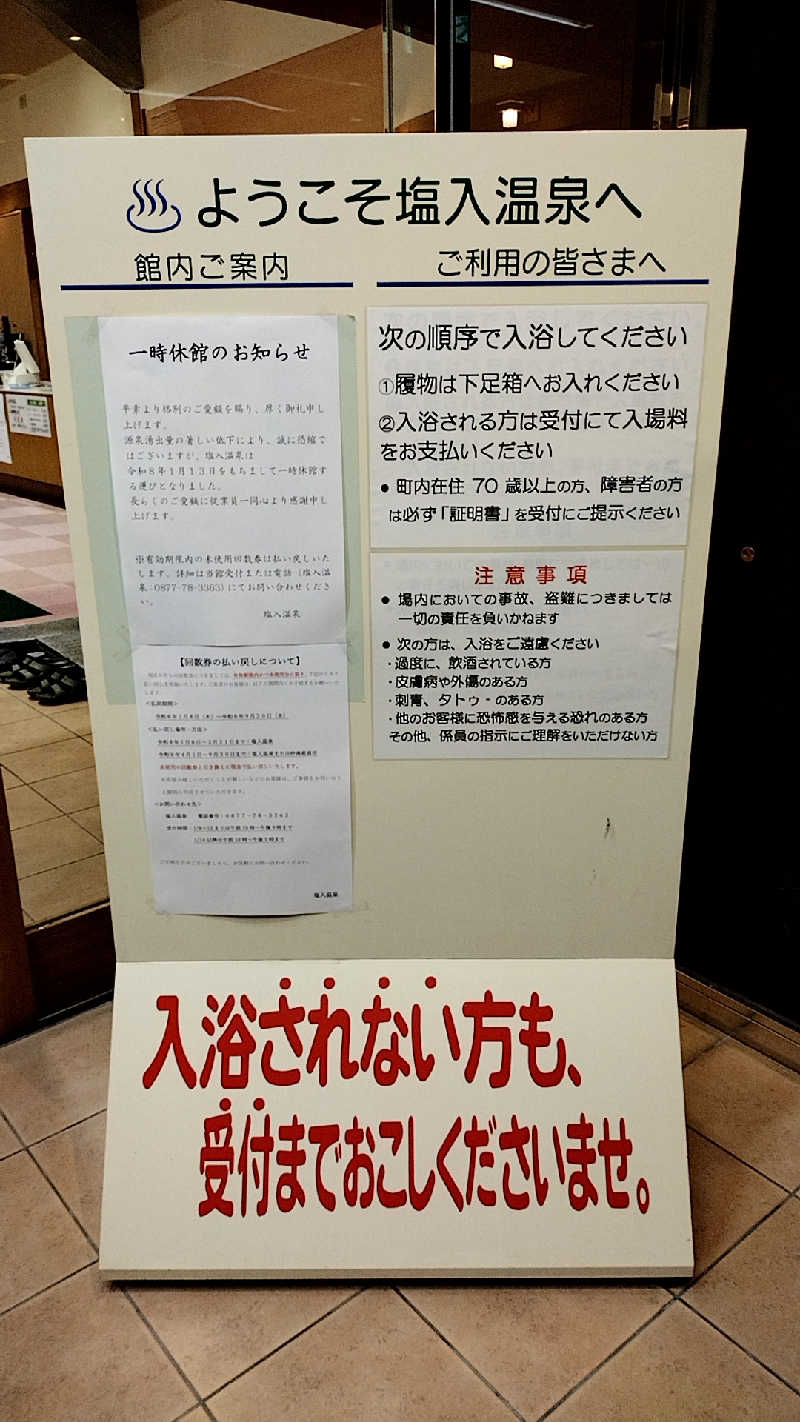 ようこそ塩入温泉へ
館内ご案内
一時休館のお知らせ
平素より格別のご愛顧を賜り、厚く御礼申し
上げます。
源泉湧出量の著しい低下により、誠に恐縮で
はございますが、塩入温泉は
令和8年1月13日をもちまして一時休館す
る運びとなりました。
長らくのご愛顧に従業員一同心より感謝申し
上げます。
※有効期限内の未使用回数券は払い戻しいた
します。詳細は当館受付または電話（塩入温
泉：0877-78-3363）にてお問い合わせくださ
い。
塩入温泉
【回数券の払い戻しについて】
＜お問い合わせ先＞
塩入温泉
ご利用の皆さまへ
次の順序で入浴してください
①履物は下足箱へお入れください
②入浴される方は受付にて入場料
をお支払いください
● 町内在住 70 歳以上の方、障害者の方
は必ず「証明書」を受付にご提示ください
注意事項
● 場内においての事故、盗難につきましては
一切の責任を負いかねます
● 次の方は、入浴をご遠慮ください
・過度に、飲酒されている方
・皮膚病や外傷のある方
・刺青、タトゥ・のある方
・他のお客様に恐怖感を与える恐れのある方
その他、係員の指示にご理解をいただけない方
入浴されない方も、
受付までおこしくださいませ。